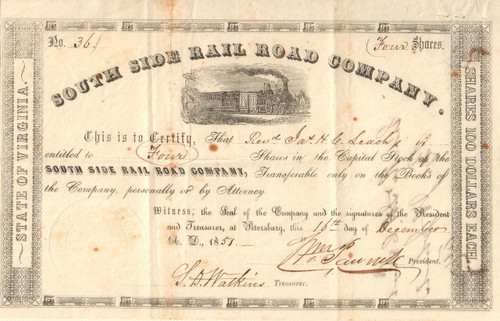 No. 361
Four Shares.
SOUTH SIDE RAIL ROAD COMPANY.
STATE OF VIRGINIA.
SHARES 100 DOLLARS EACH.
This is to Certify, That Revd Jas H. C. Leach is
entitled to Four Shares in the Capital Stock of the
SOUTH SIDE RAIL ROAD COMPANY, Transferable only on the Books of
the Company, personally or by Attorney.
Witness, the Seal of the Company and the signatures of the President
and Treasurer, at Petersburg, this 16th day of December
A. D. 1851.
President.
S. D. Watkins Treasurer.